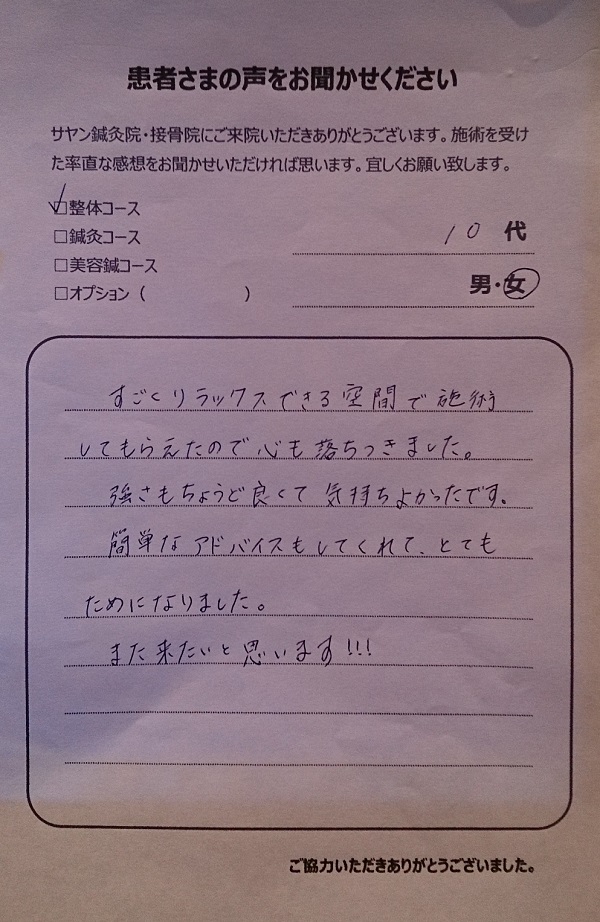 患者さまの声をお聞かせください
サヤン鍼灸院・接骨院にご来院いただきありがとうございます。施術を受け
た率直な感想をお聞かせいただければ思います。宜しくお願い致します。
☑整体コース
□鍼灸コース
□美容鍼コース
□オプション（　　　　　）
10 代
男・女
すごくリラックスできる空間で施術
してもらえたので心も落ちつきました。
強さもちょうど良くて気持ちよかったです。
簡単なアドバイスもしてくれて、とても
ためになりました。
また来たいと思います!!!
ご協力いただきありがとうございました。